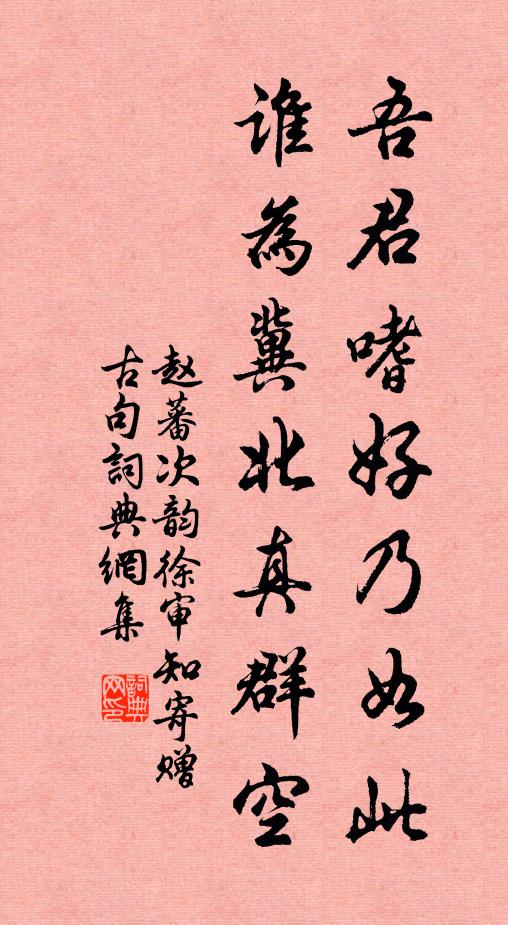 吾君嗜好乃如此
谁為冀北真群空
赵蕃次韵徐审知寄赠
古句詞典網集
詞典网印